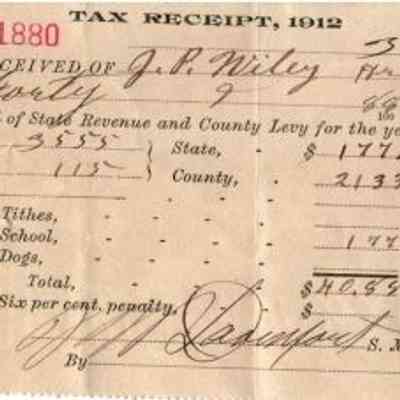 TAX RECEIPT, 1912
1880
CEIVED OF J. P. Wiley
Forty 9 88/100
of State Revenue and County Levy for the ye
3555 } State, - $ 177
115 } County, - 2133
Tithes, - - -
School, - - - 177
Dogs, - - -
Total, - - $ 40.88
Six per cent. penalty. - $
Davenport S.
By